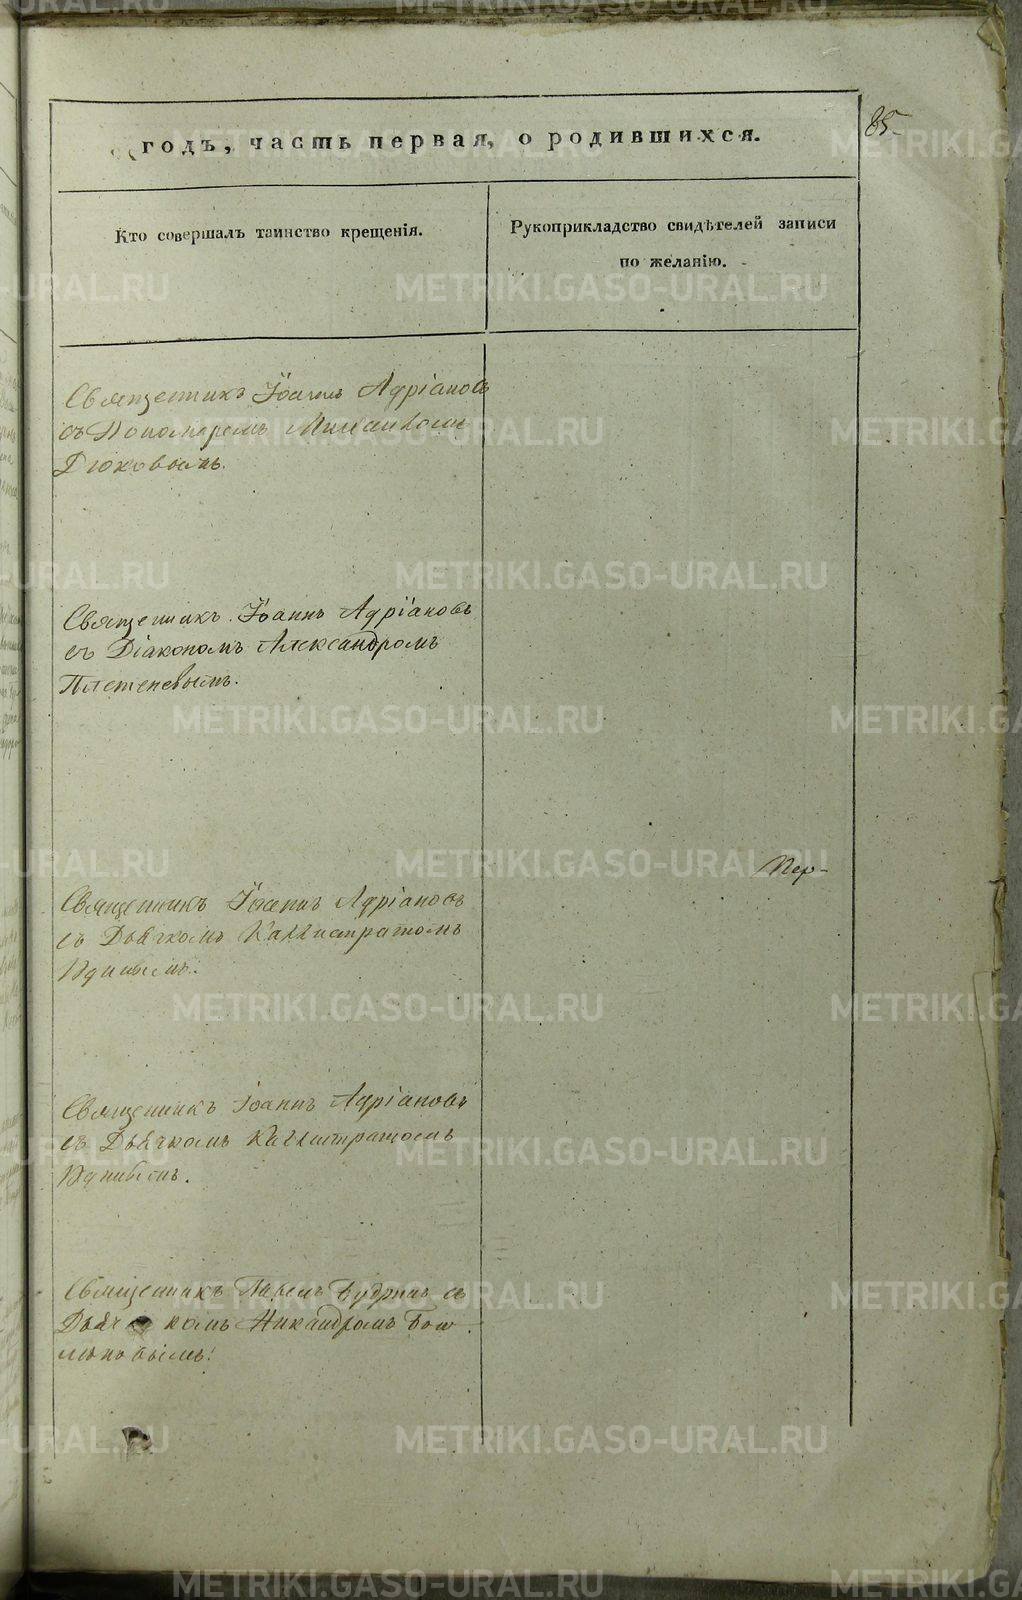 85
годъ, часть первая, о родившихся.
Кто совершалъ таинство крещенія.
Рукоприкладство свидѣтелей записи
по желанію.
Священникъ Іоаннъ Адріановъ
съ Пономаремъ
Дюковымъ.
Священникъ Іоаннъ Адріановъ
съ Діакономъ Александромъ
Плетеневымъ.
Священникъ Іоаннъ Адріановъ
съ Дьячкомъ Каллистратомъ
Священникъ Іоаннъ Адріановъ
съ Дьячкомъ Каллистратомъ
Священникъ Павелъ Будринъ съ
Дьячкомъ Никандромъ
METRIKI.GASO-URAL.RU